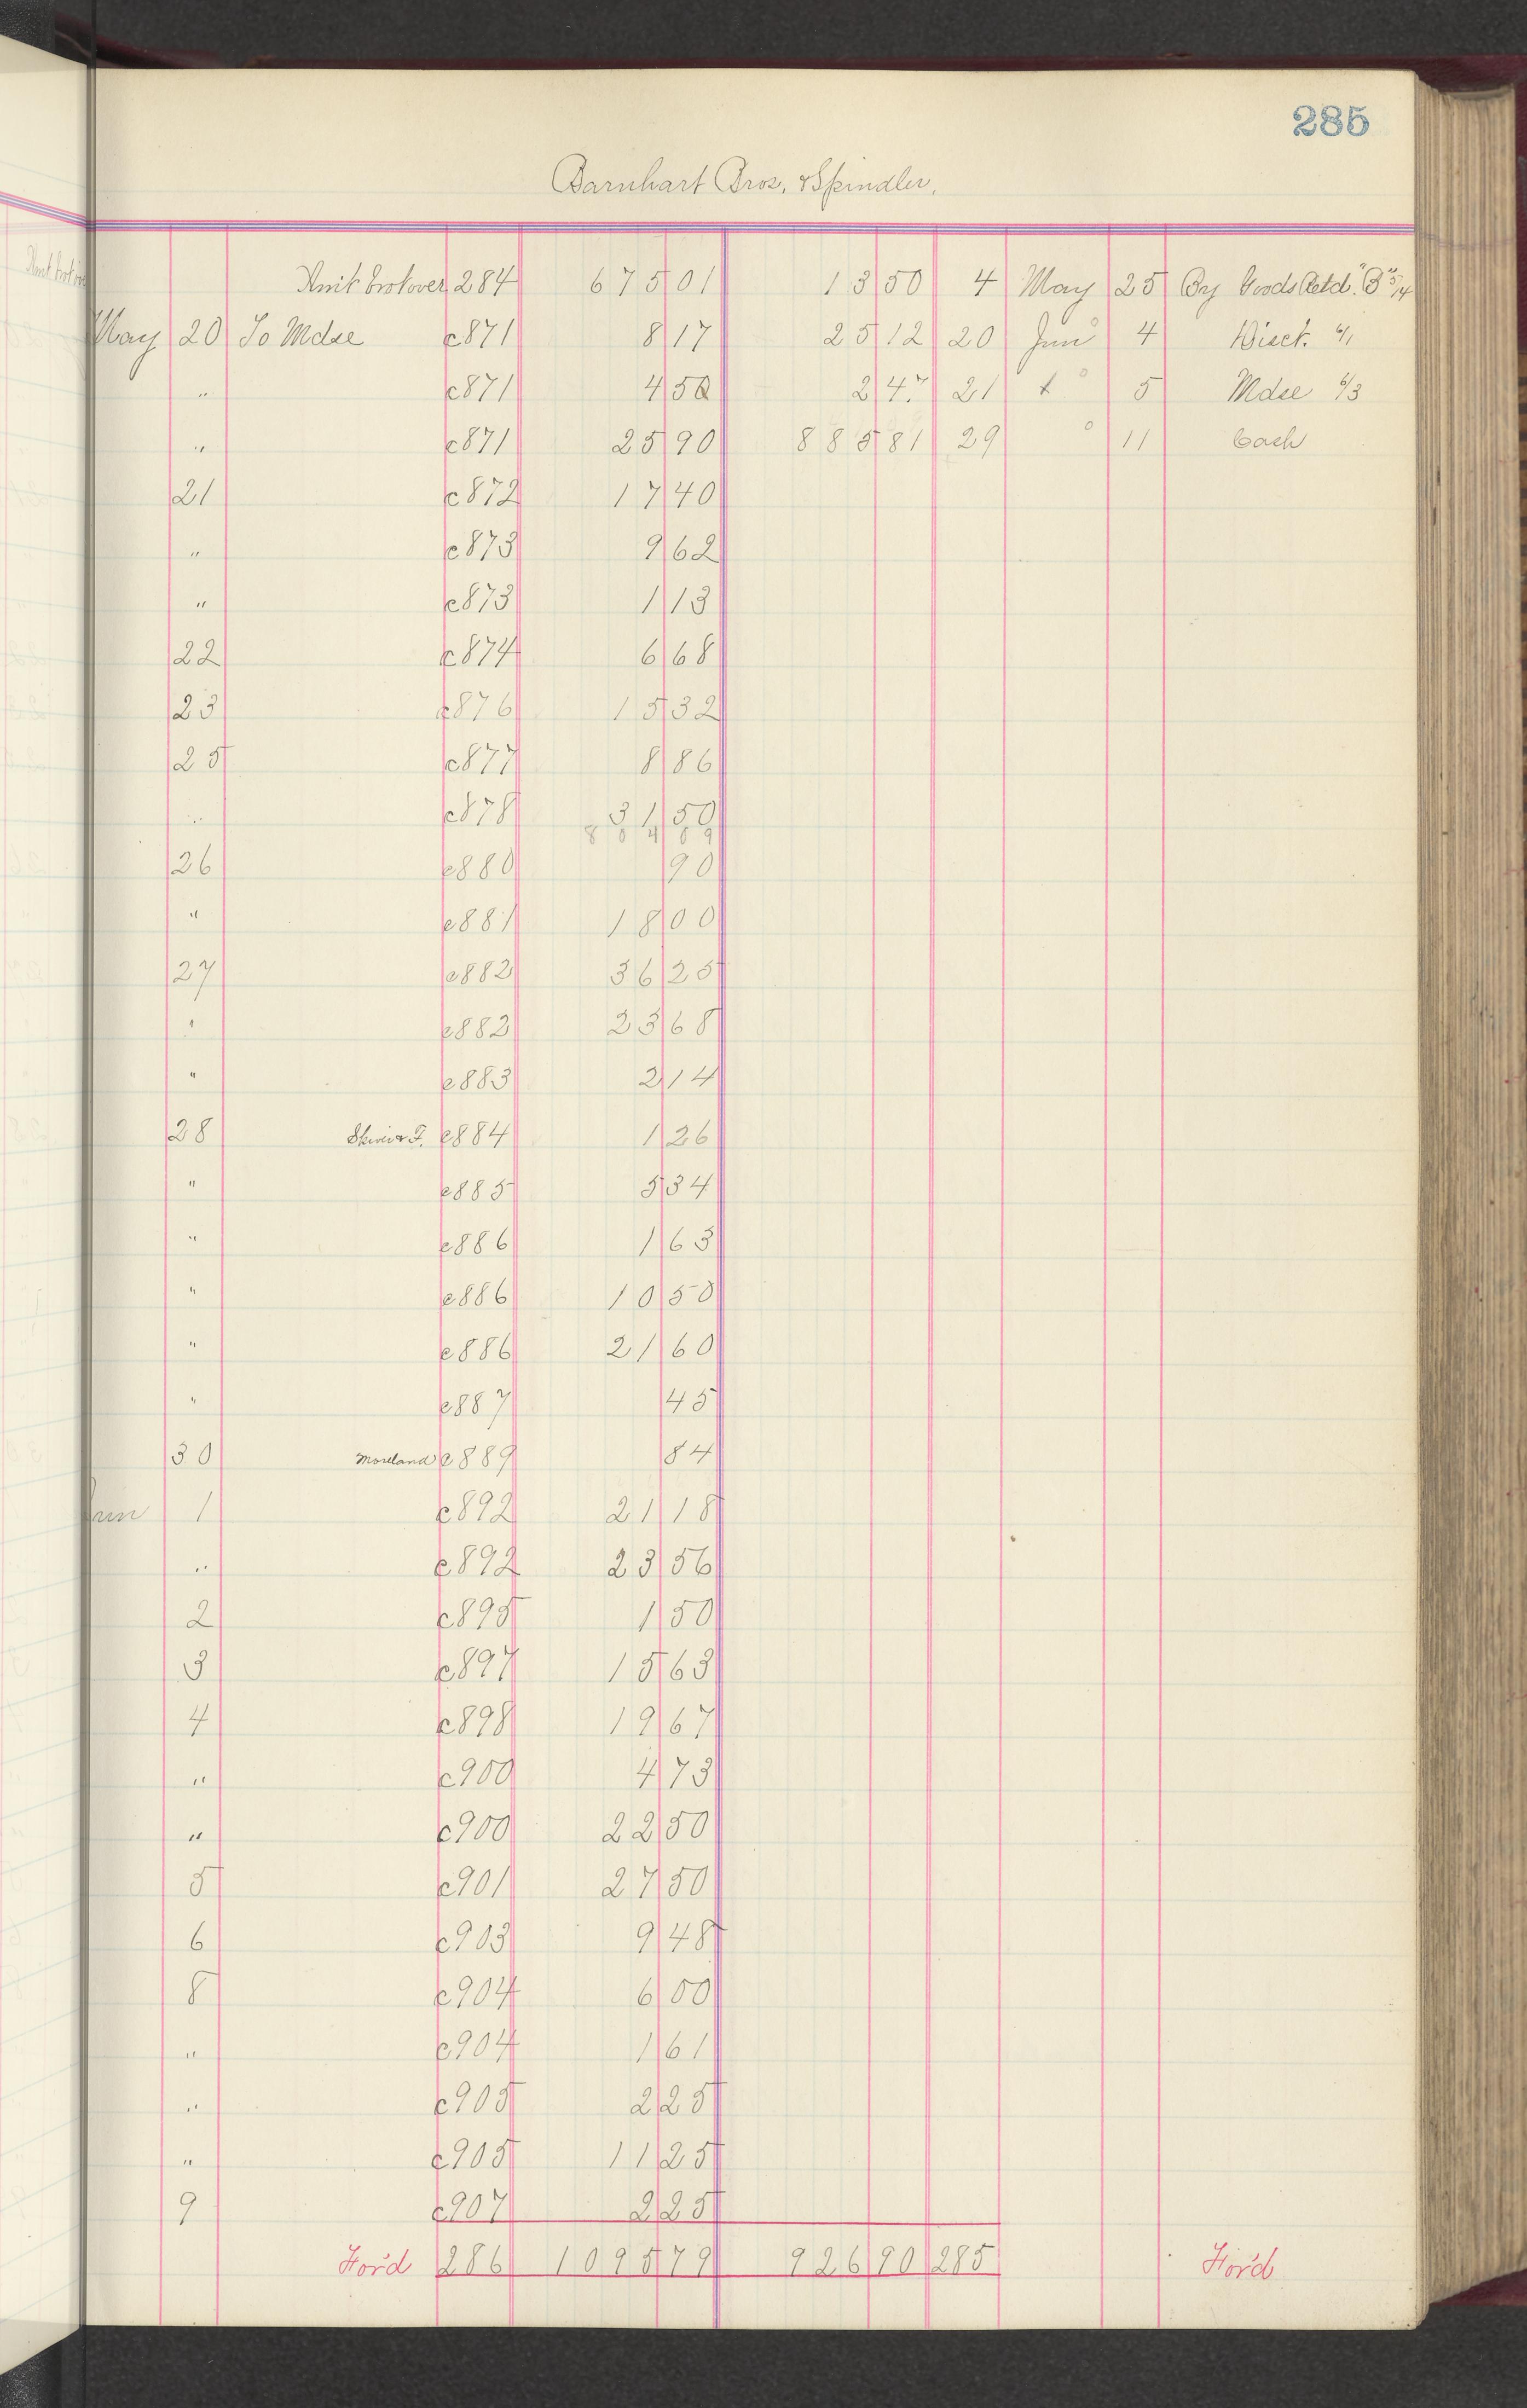 285
Barnhart Bros, & Spindler,
Amt brot over 284 675 01 13 50 4 May 25 By Goods Retd. "B" 5/14
May 20 To Mdse c871 8 17 25 12 20 Jun 4 Disct. 6/1
" c871 4 50 2 47 21 " 5 Mdse 6/3
" c871 25 90 885 81 29 " 11 Cash
21 c872 17 40
" c873 9 62
" c873 1 13
22 c874 6 68
23 c876 15 32
25 c877 8 86
" c878 31 50
804 09
26 c880 90
" c881 18 00
27 c882 36 25
" c882 23 68
" c883 2 14
28 c884 1 26
" c885 5 34
" c886 1 63
" c886 10 50
" c886 21 60
" c887 45
30 Moreland c889 84
Jun 1 c892 21 18
" c892 23 56
2 c895 1 50
3 c897 15 63
4 c898 19 67
" c900 4 73
" c900 22 50
5 c901 27 50
6 c903 9 48
8 c904 6 00
" c904 1 61
" c905 2 25
" c905 11 25
9 c907 2 25
For'd 286 1095 79 926 90 285 For'd